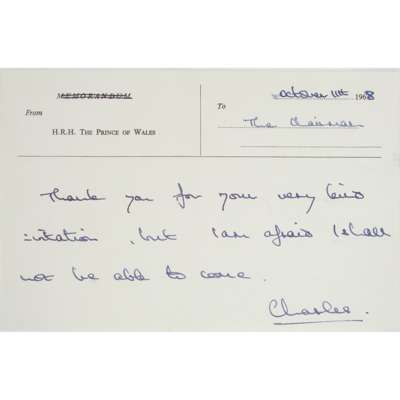 MEMORANDUM
October 11th 1968
From
To
H.R.H. THE PRINCE OF WALES
The Chairman
Thank you for your very kind
invitation, but I am afraid I shall
not be able to come.
Charles.